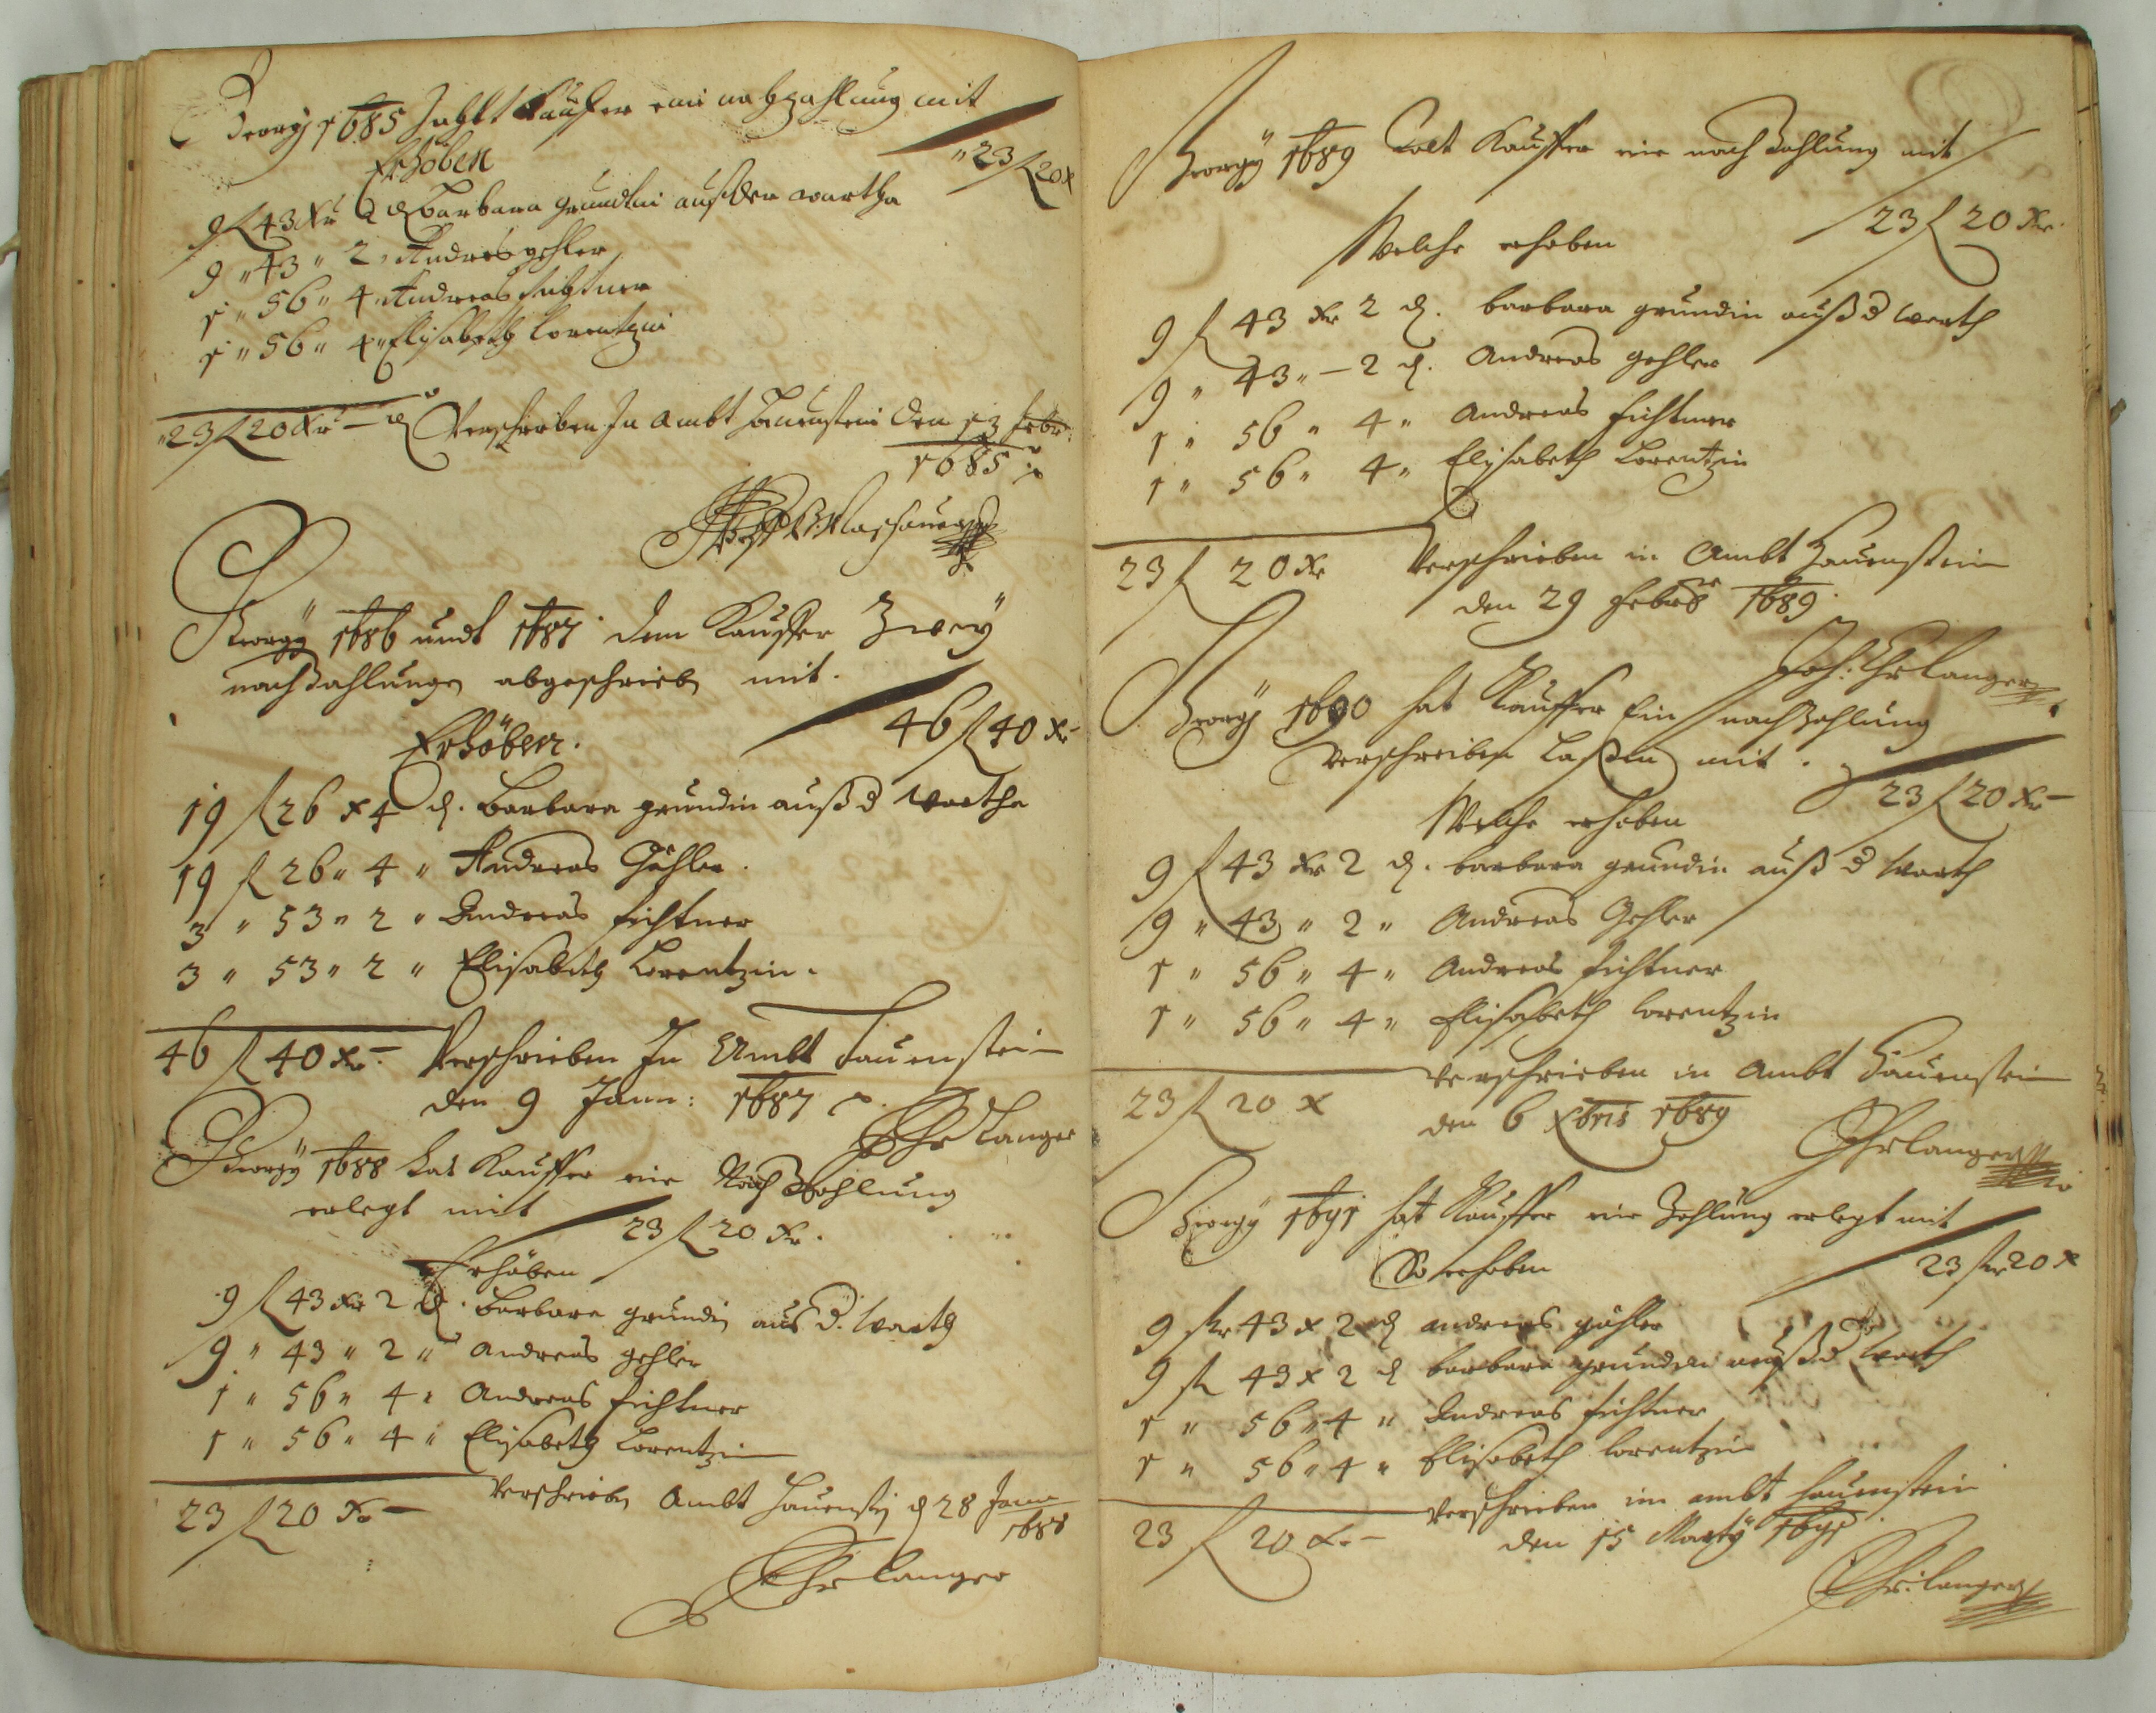 Georgy 1685 Zahlt Kauffer eine nachzahlung mit
"23 fl 20 x
Erhöben
9 fl 43 xr 2 d Barbara grundtin auß der wartha
9 " 43 " 2 " Andres gehler
1 " 56 " 4 " Andreas fichtner
1 " 56 " 4 " Elisabeth Lorentzin
"23 fl 20 xr — d Verschrieben In Ambt Hauenstein den 13 febr:
1685

Georgÿ 1686 undt 1687 dem Kauffer Zweÿ
nachzahlungen abgeschrieben mit.
46 fl 40 xr
Erhöben.
19 fl 26 x 4 d. Barbara grundin auß d wartha
19 fl 26 " 4 " Andreas Gehler.
3 " 53 " 2 " Andreas fichtner
3 " 53 " 2 " Elisabeth Lorentzin.
46 fl 40 xr. — Verschrieben In Ambt Hauenstein
den 9 Jann: 1687
Ehrlanger
Georgÿ 1688 hat Kauffer eine Nach Zahlung
erlegt mit 23 fl 20 xr.
Erhöben
9 fl 43 xr 2 d. Barbara grundin aus d. warth
9 " 43 " 2 " Andreas gehler
1 " 56 " 4 " Andreas fichtner
1 " 56 " 4 " Elisabeth Lorentzin
23 fl 20 xr — Verschrieben Ambt Hauenstein d 28 Jann
1688
Ehrlanger
Georgÿ 1689 hatt Kauffer eine nach Zahlung mit
23 fl 20 xr.
Welche erhoben
9 fl 43 xr 2 d. barbara grundin auß d warth
9 " 43 " — 2 d. Andreas gehler
1 " 56 " 4 " Andreas fichtner
1 " 56 " 4 " Elisabeth Lorentzin
23 fl 20 xr Verschrieben in Ambt Hauenstein
den 29 febr 1689.
Joh: Ehrlanger
Georgÿ 1690 hat Kauffer Ein nachzahlung
verschreiben Laßen mit.
23 fl 20 xr —
Welche erhoben
9 fl 43 xr 2 d. barbara grundin auß d warth
9 " 43 " 2 " Andreas Gehler
1 " 56 " 4 " Andreas fichtner
1 " 56 " 4 " Elisabeth Lorentzin
23 fl 20 x Verschrieben in Ambt Hauenstein
den 6 xbris 1689
Ehrlanger
Georgÿ 1691 hat Kauffer eine Zahlung erlegt mit
23 fl 20 x
So erhoben
9 fl 43 x 2 d andreas gähler
9 fl 43 x 2 d barbara grundin auß d warth
1 " 56 " 4 " Andreas fichtner
1 " 56 " 4 " Elisabeth Lorentzin
23 fl 20 x. — Verschrieben im ambt Hauenstein
den 15 Martÿ 1691
Ehrlanger